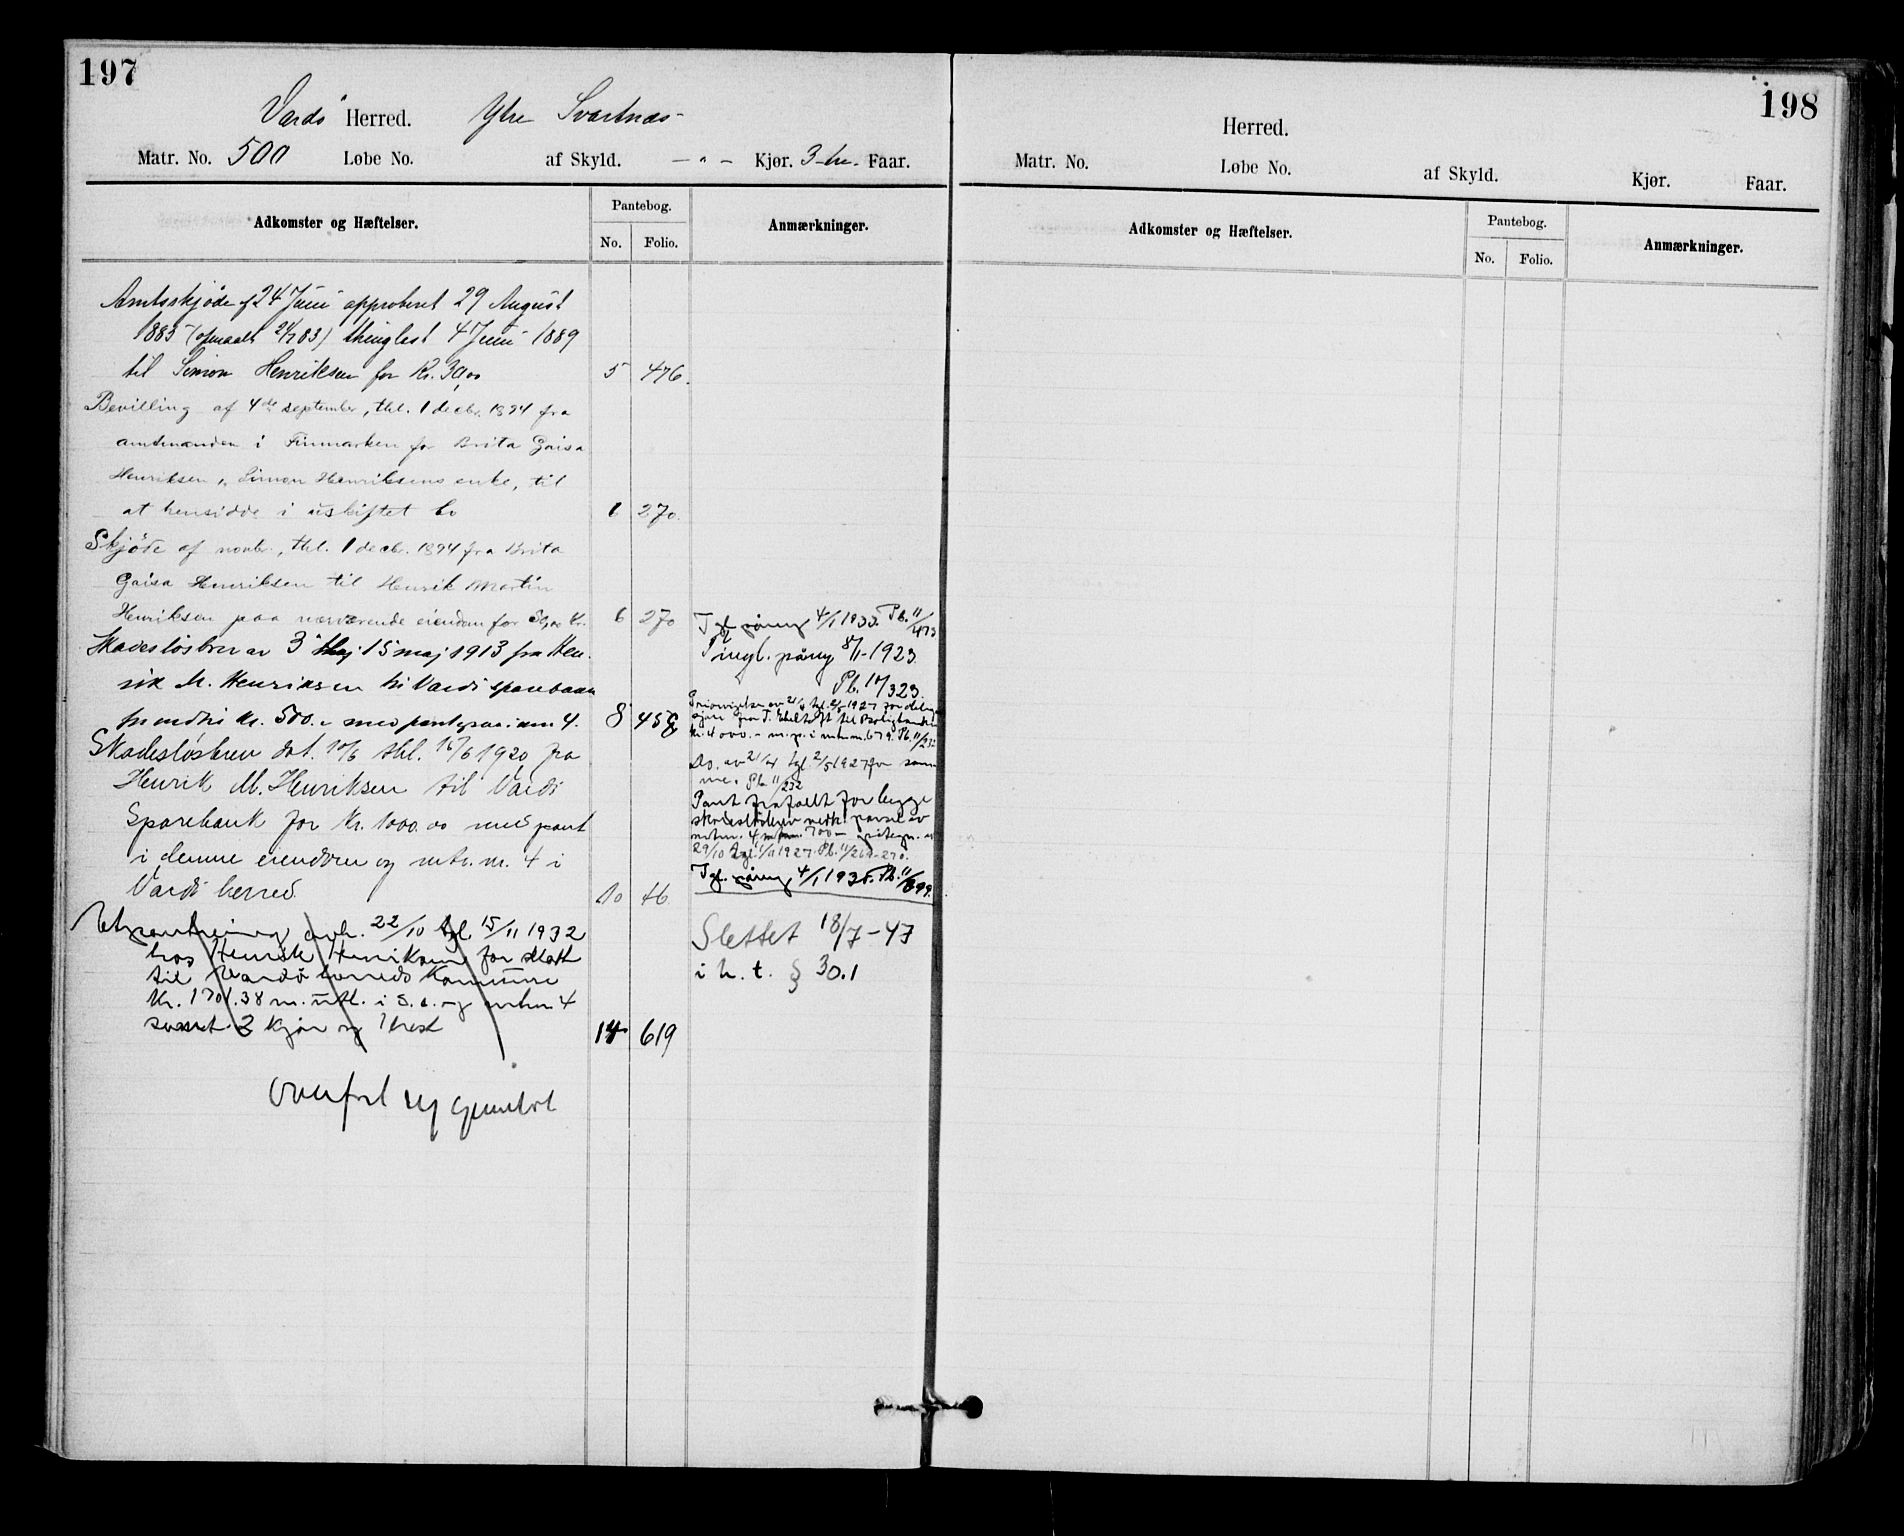 197
Vardø Herred. Ytre Svartnæs
Matr. No. 500 Løbe No. af Skyld. — " — Kjør. 3 Faar.
Adkomster og Hæftelser. Pantebog. No. Folio. Anmærkninger.
Amtsskjøde af 24 Juni approberet 29 August
1885 thinglæst 4 Juni 1889
til Simon Henriksen for Kr. 30,00 5 476.
Bevilling af 4de september, thl. 1 decbr. 1894 fra
amtmanden i Finmarken for Brita Gaisa
Henriksen, Simon Henriksens enke, til
at hensidde i uskiftet bo 6 270.
Skjøde af novbr., thl. 1 decbr. 1894 fra Brita
Gaisa Henriksen til Henrik Martin
Henriksen paa nærværende eiendom for 50,00 Kr. 6 270
Skadesløsbrev av 3 Maj 15 maj 1913 fra Hen-
rik M. Henriksen til Vardø sparebank
Kr. 500.- med pant 4. 8 458
Skadesløsbrev dat. 10/6 thl. 16/6 1920 fra
Henrik M. Henriksen til Vardø
Sparebank for Kr. 1000.00 med pant
i denne eiendom og mtr. nr. 4 i
Vardø herred. 10 46.
Utpantning avh. 22/10 tgl. 15/11 1932
hos Henrik Henriksen for skatt
til Vardø herreds Kommune
Kr. 1701.38 m. utl. i s. e. og mtrn 4
samt 2 kjør og 1 hest 14 619
Tgl. påny 4/1 1933. Pb. 11/473
Tingl. påny 8/11-1923.
Pb. 10/323.
Kr. 4000.- m. p. i mtr. nr. 679. Pb. 11/232
Do. av 21/4 tgl. 2/5 1927 for sam-
me. Pb. 11/232
Pant frafallt for begge
skadesløsbrev
29/10 tgl. 1/11 1927. Pb. 11/269-270.
Tgl. påny 4/1 1935. Pb. 11/699.
Slettet 18/7-47
i h. t. § 30.1
198
Herred.
Matr. No. Løbe No. af Skyld. Kjør. Faar.
Adkomster og Hæftelser. Pantebog. No. Folio. Anmærkninger.